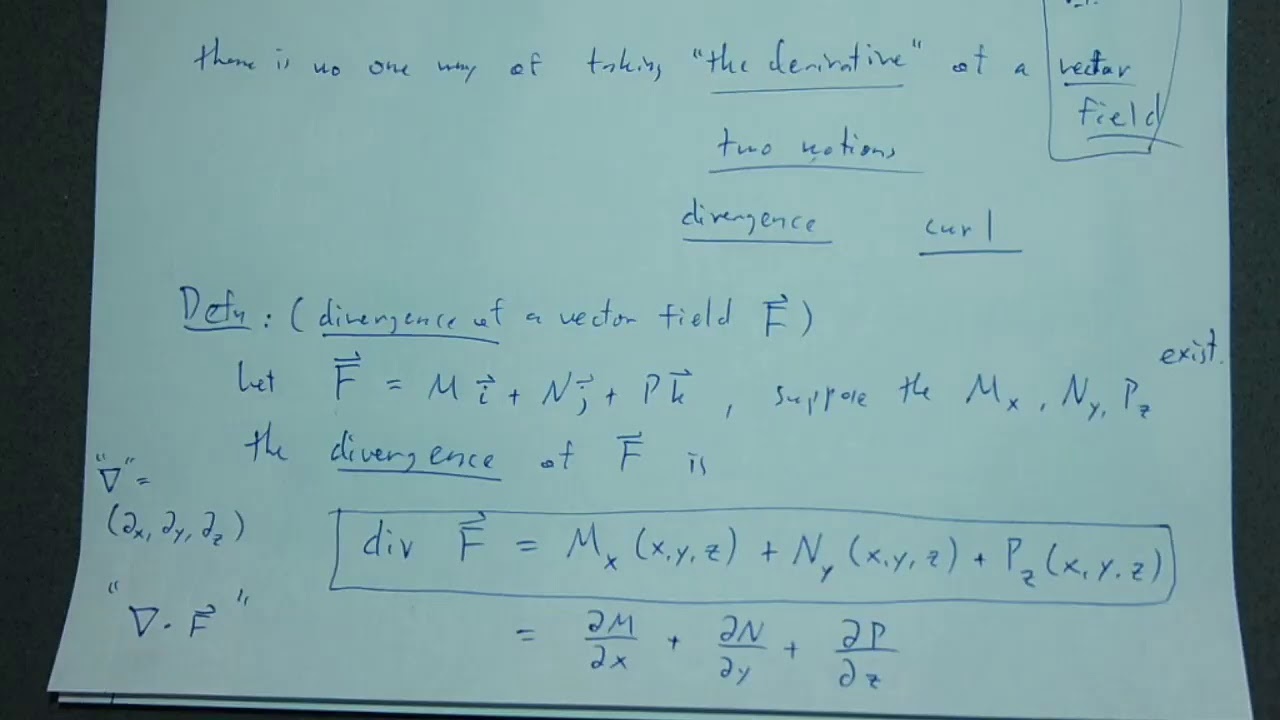 there is no one way of taking "the derivative" of a vector
field
two notions
divergence curl
Defn: (divergence of a vector field F⃗)
Let F⃗ = M i⃗ + N j⃗ + P k⃗, suppose the Mₓ, N_y, P_z exist.
the divergence of F⃗ is
"∇" =
(∂ₓ, ∂_y, ∂_z)
div F⃗ = Mₓ(x,y,z) + N_y(x,y,z) + P_z(x,y,z)
"∇ · F⃗"
= ∂M/∂x + ∂N/∂y + ∂P/∂z